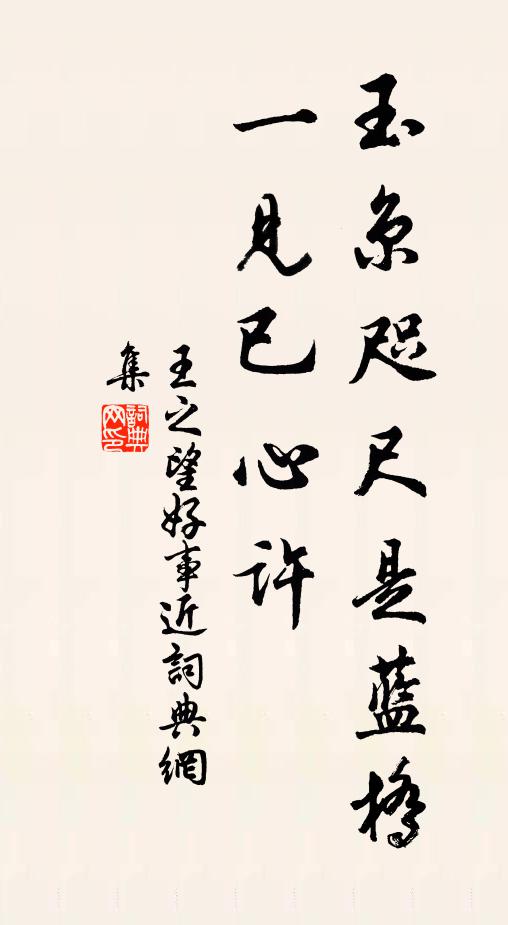 玉京咫尺是蓝橋
一見已心許
王之望好事近詞典網
集
詞典
网印